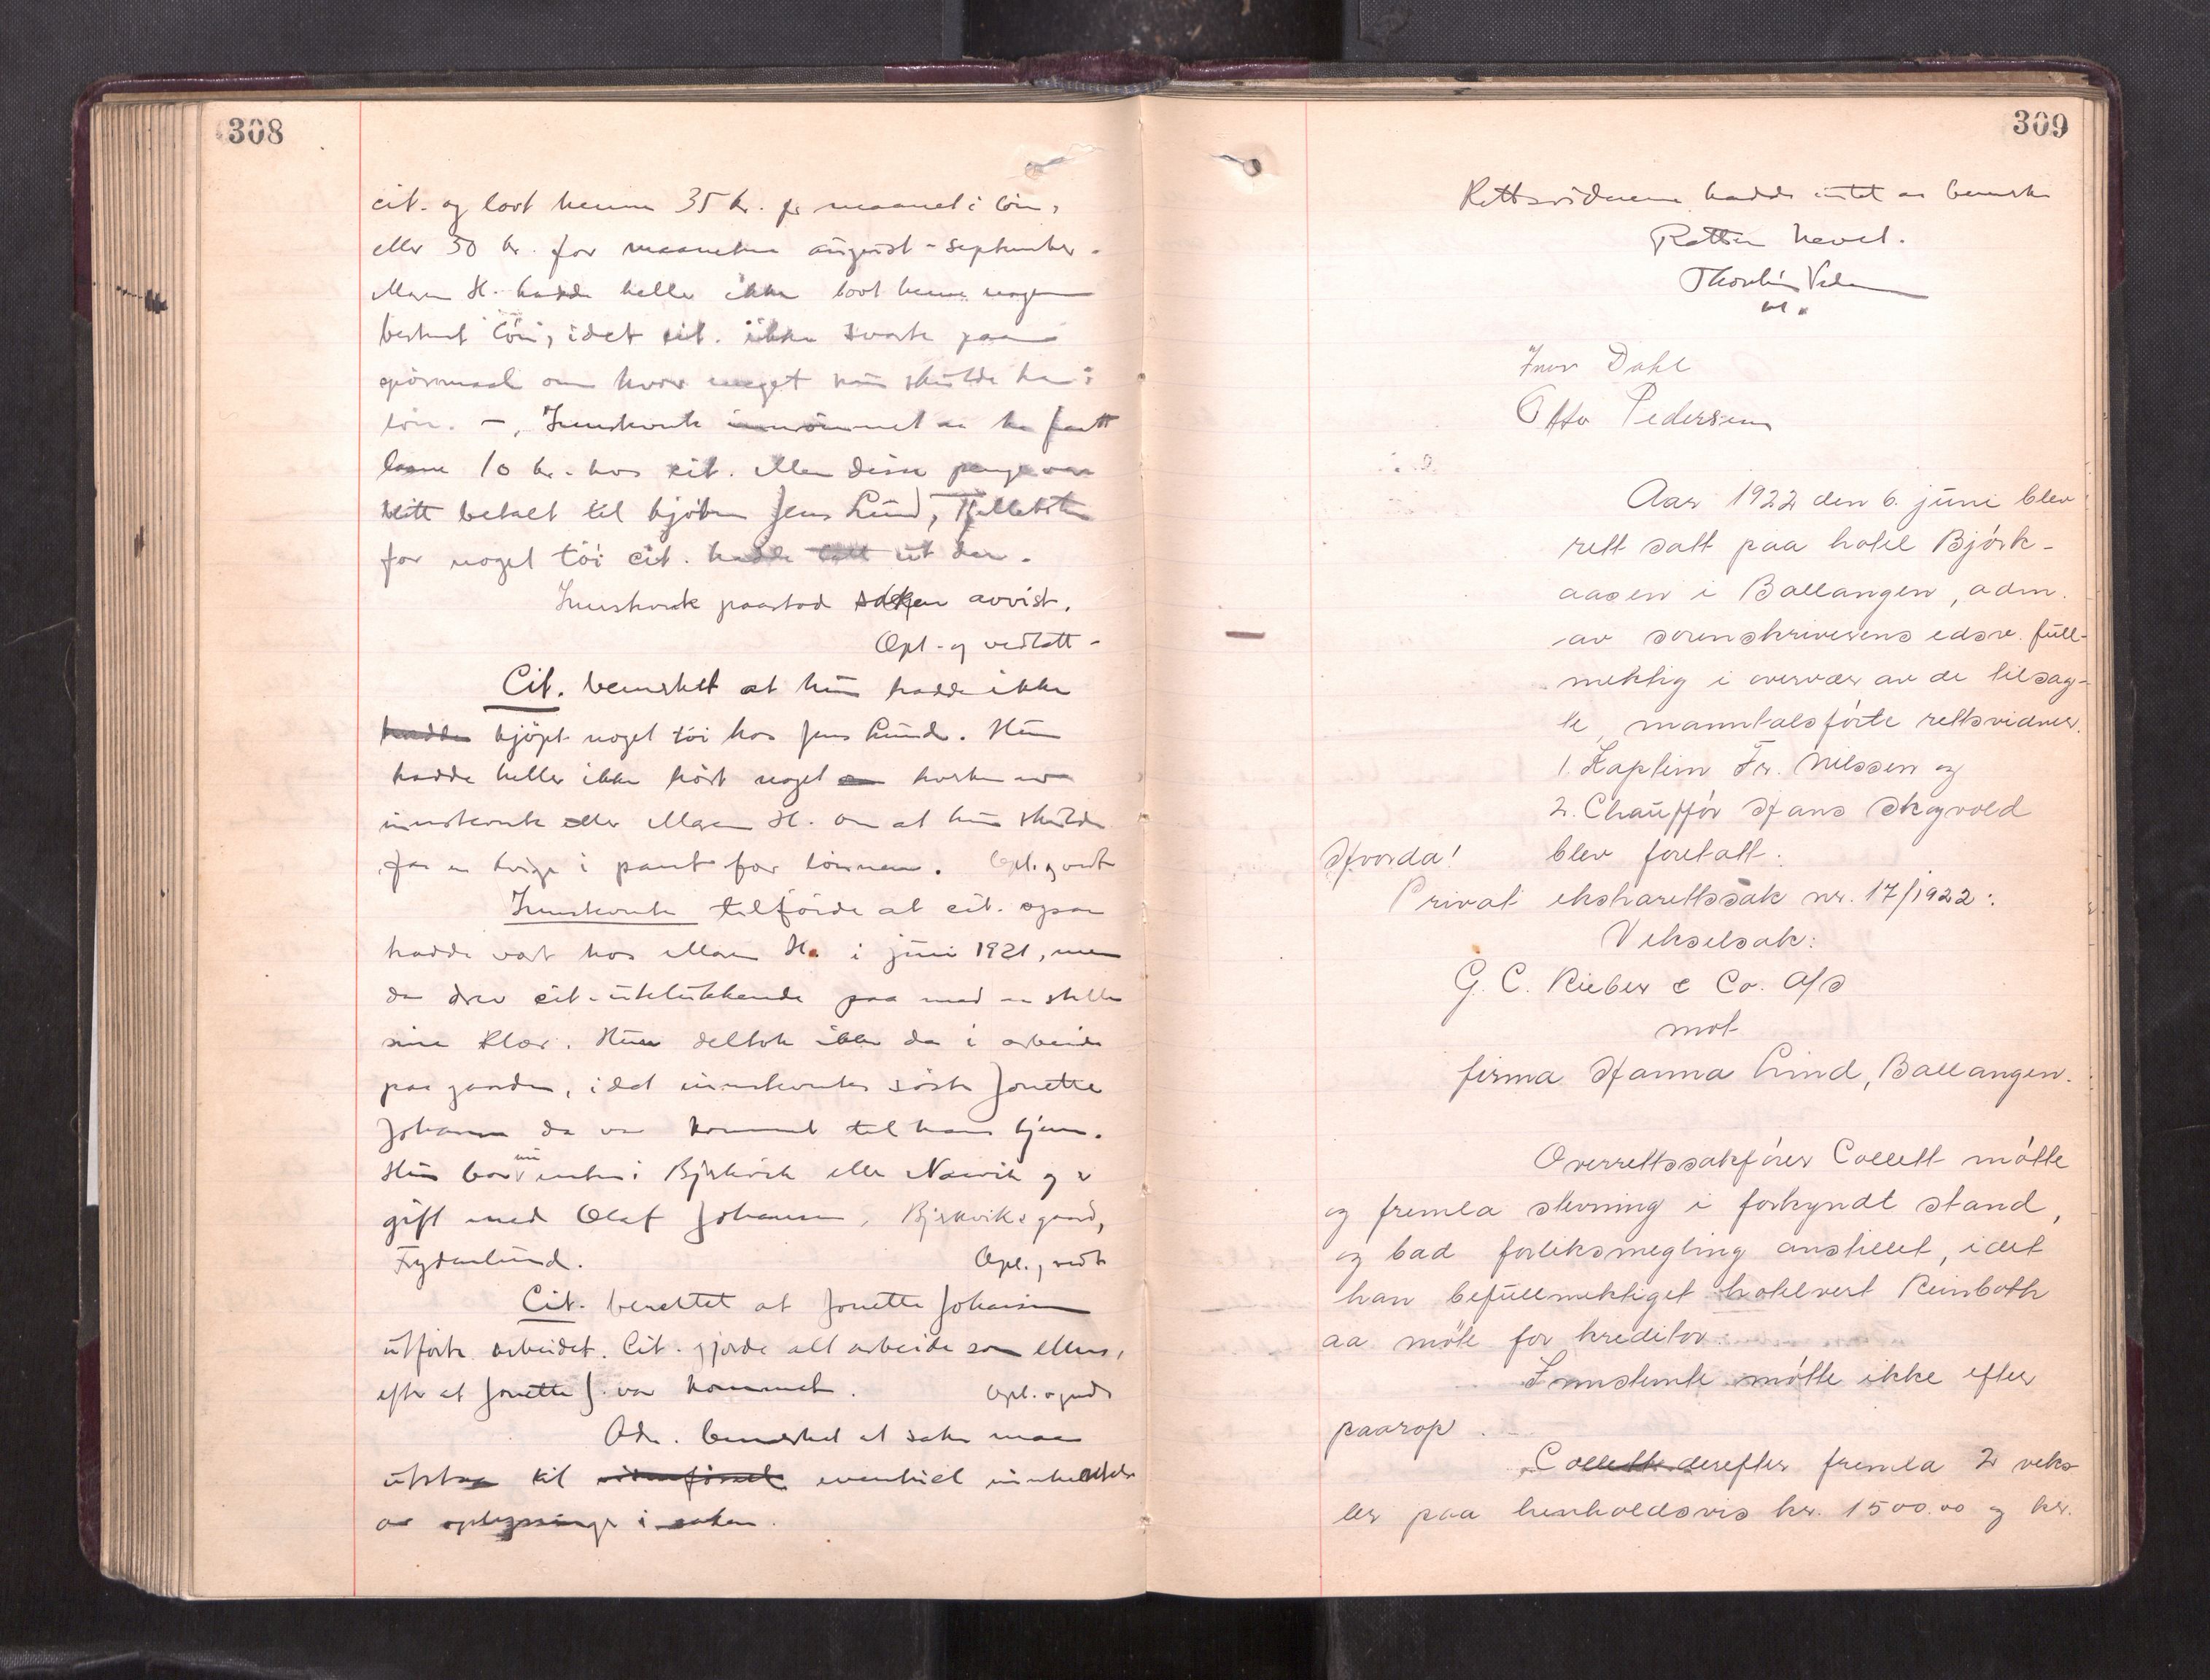 308
cit. og lovt henne 35 kr. pr maanet i lön,
eller 50 kr. for maanetene august - september.
Maren H. hadde heller ikke lovt henne nogen
bestemt lön, idet cit. ikke svarte paa
spörsmaal om hvor meget hun skulde ha i
lön. -, Innstevnte innrömmet aa ha faatt
laane 10 kr. hos cit. Men disse penge var
blitt betalt til kjöbm Jens Lund,
for noget töi cit. hadde tatt ut der.
Innstevnte paastod saken avvist.
Opl. og vedtatt -
Cit. bemerket at hun hadde ikke
hadde kjöpt noget töi hos Jens Lund. Hun
hadde heller ikke hört noget hverken av
innstevnte eller Maren H. om at hun skulde
faa en kvige i pant for lönnen. Opl. og vedt
Innstevnte tilförde at cit. ogsaa
hadde vært hos Maren H. i juni 1921, men
da drev cit. utelukkende paa med aa stelle
sine klær. Hun deltok ikke da i arbeide
paa gaarden, idet innstevntes söster Jonette
Johansen da var kommet til hans hjem.
Hun bor nu enten i Bjerkvik eller Narvik og er
gift med Olaf Johansen, Bjerkviks gaard,
Frydenlund. Opl. og vedt
Cit. berettet at Jonette Johansen
utförte arbeidet. Cit. gjorde alt arbeide som ellers,
efter at Jonette J. var kommet. Opl. og vedt
Adm. bemerket at saken maa
utstaa til eventuel innhentelse
av oplysninger i saken.
309
Rettsvidnene hadde intet aa bemerke
Retten hevet.
Ivar Dahl
Otto Pedersen
Aar 1922 den 6. juni blev
rett satt paa hotel Björk-
aasen i Ballangen, adm.
av sorenskriverens edsv. full-
mektig i overvær av de tilsag-
te, manntalsförte rettsvidner.
1. Kaptein Fr. Nilssen og
2. Chaufför Hans Skogvold
Hvorda! blev foretatt:
Privat ekstrarettssak nr. 17/1922:
Vekselsak:
G. C. Rieber & Co. A/S
mot
firma Hanna Lind, Ballangen.
Overrettssakförer Collett mötte
og fremla stevning i forkyndt stand,
og bad forliksmegling anstillet, idet
han befullmektiget hotelvert Reinboth
aa möte for kreditor.
Innstemte mötte ikke efter
paarop.
Collett derefter fremla 2 veks
ler paa henholdsvis kr. 1500.00 og kr.